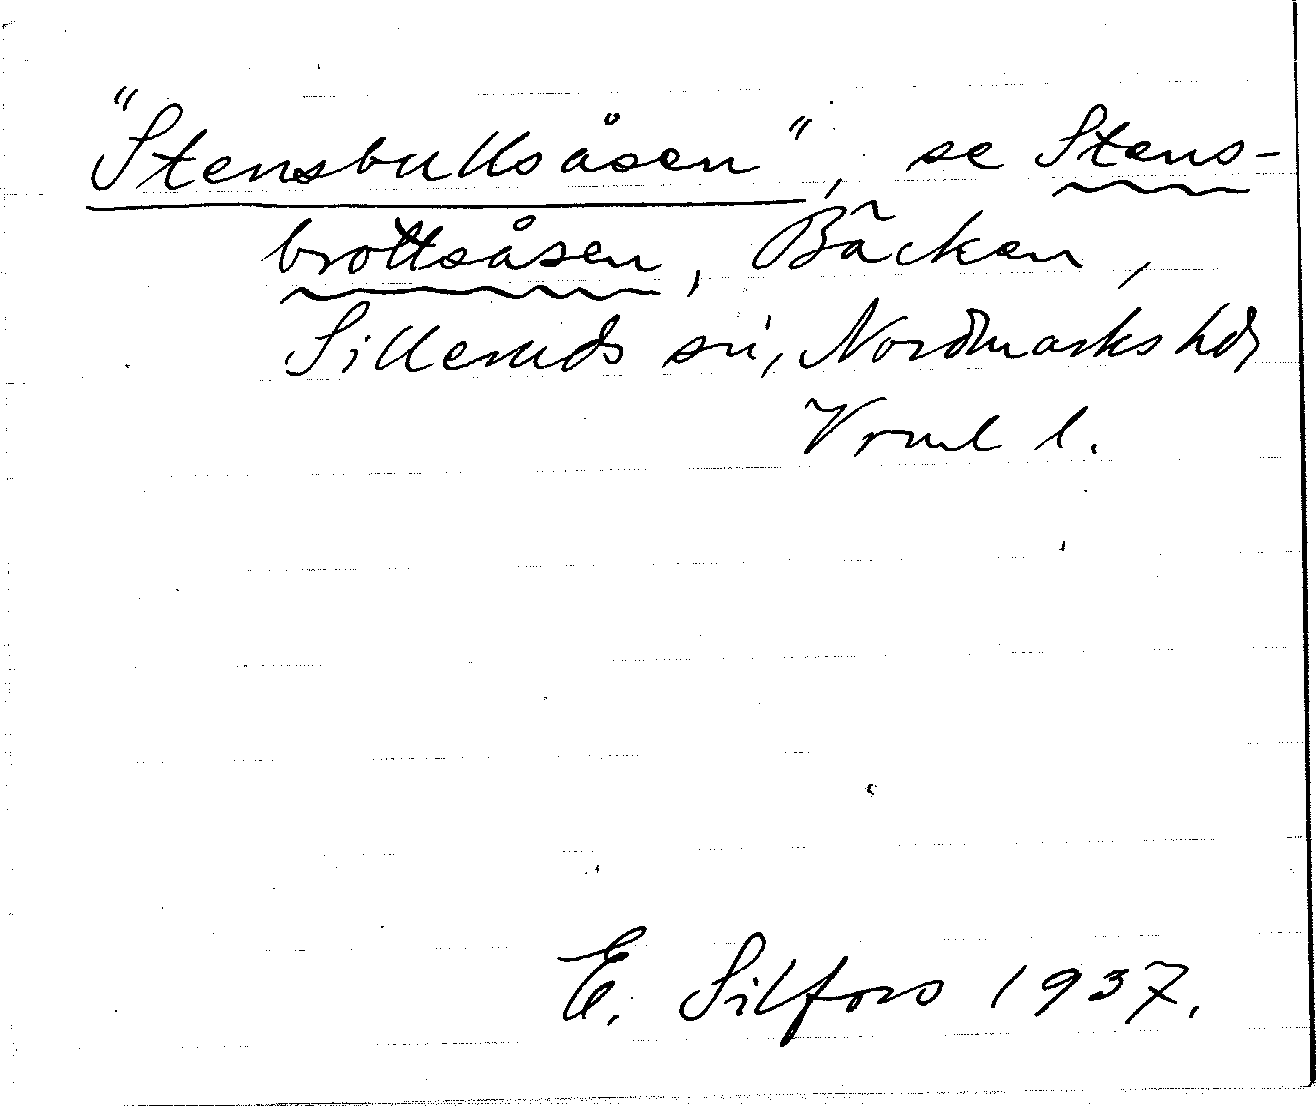 "Stensbultsåsen", se Stens-
brottsåsen, Bäcken,
Silleruds sn, Nordmarks hd,
Vrml l.
E. Silfors 1937.